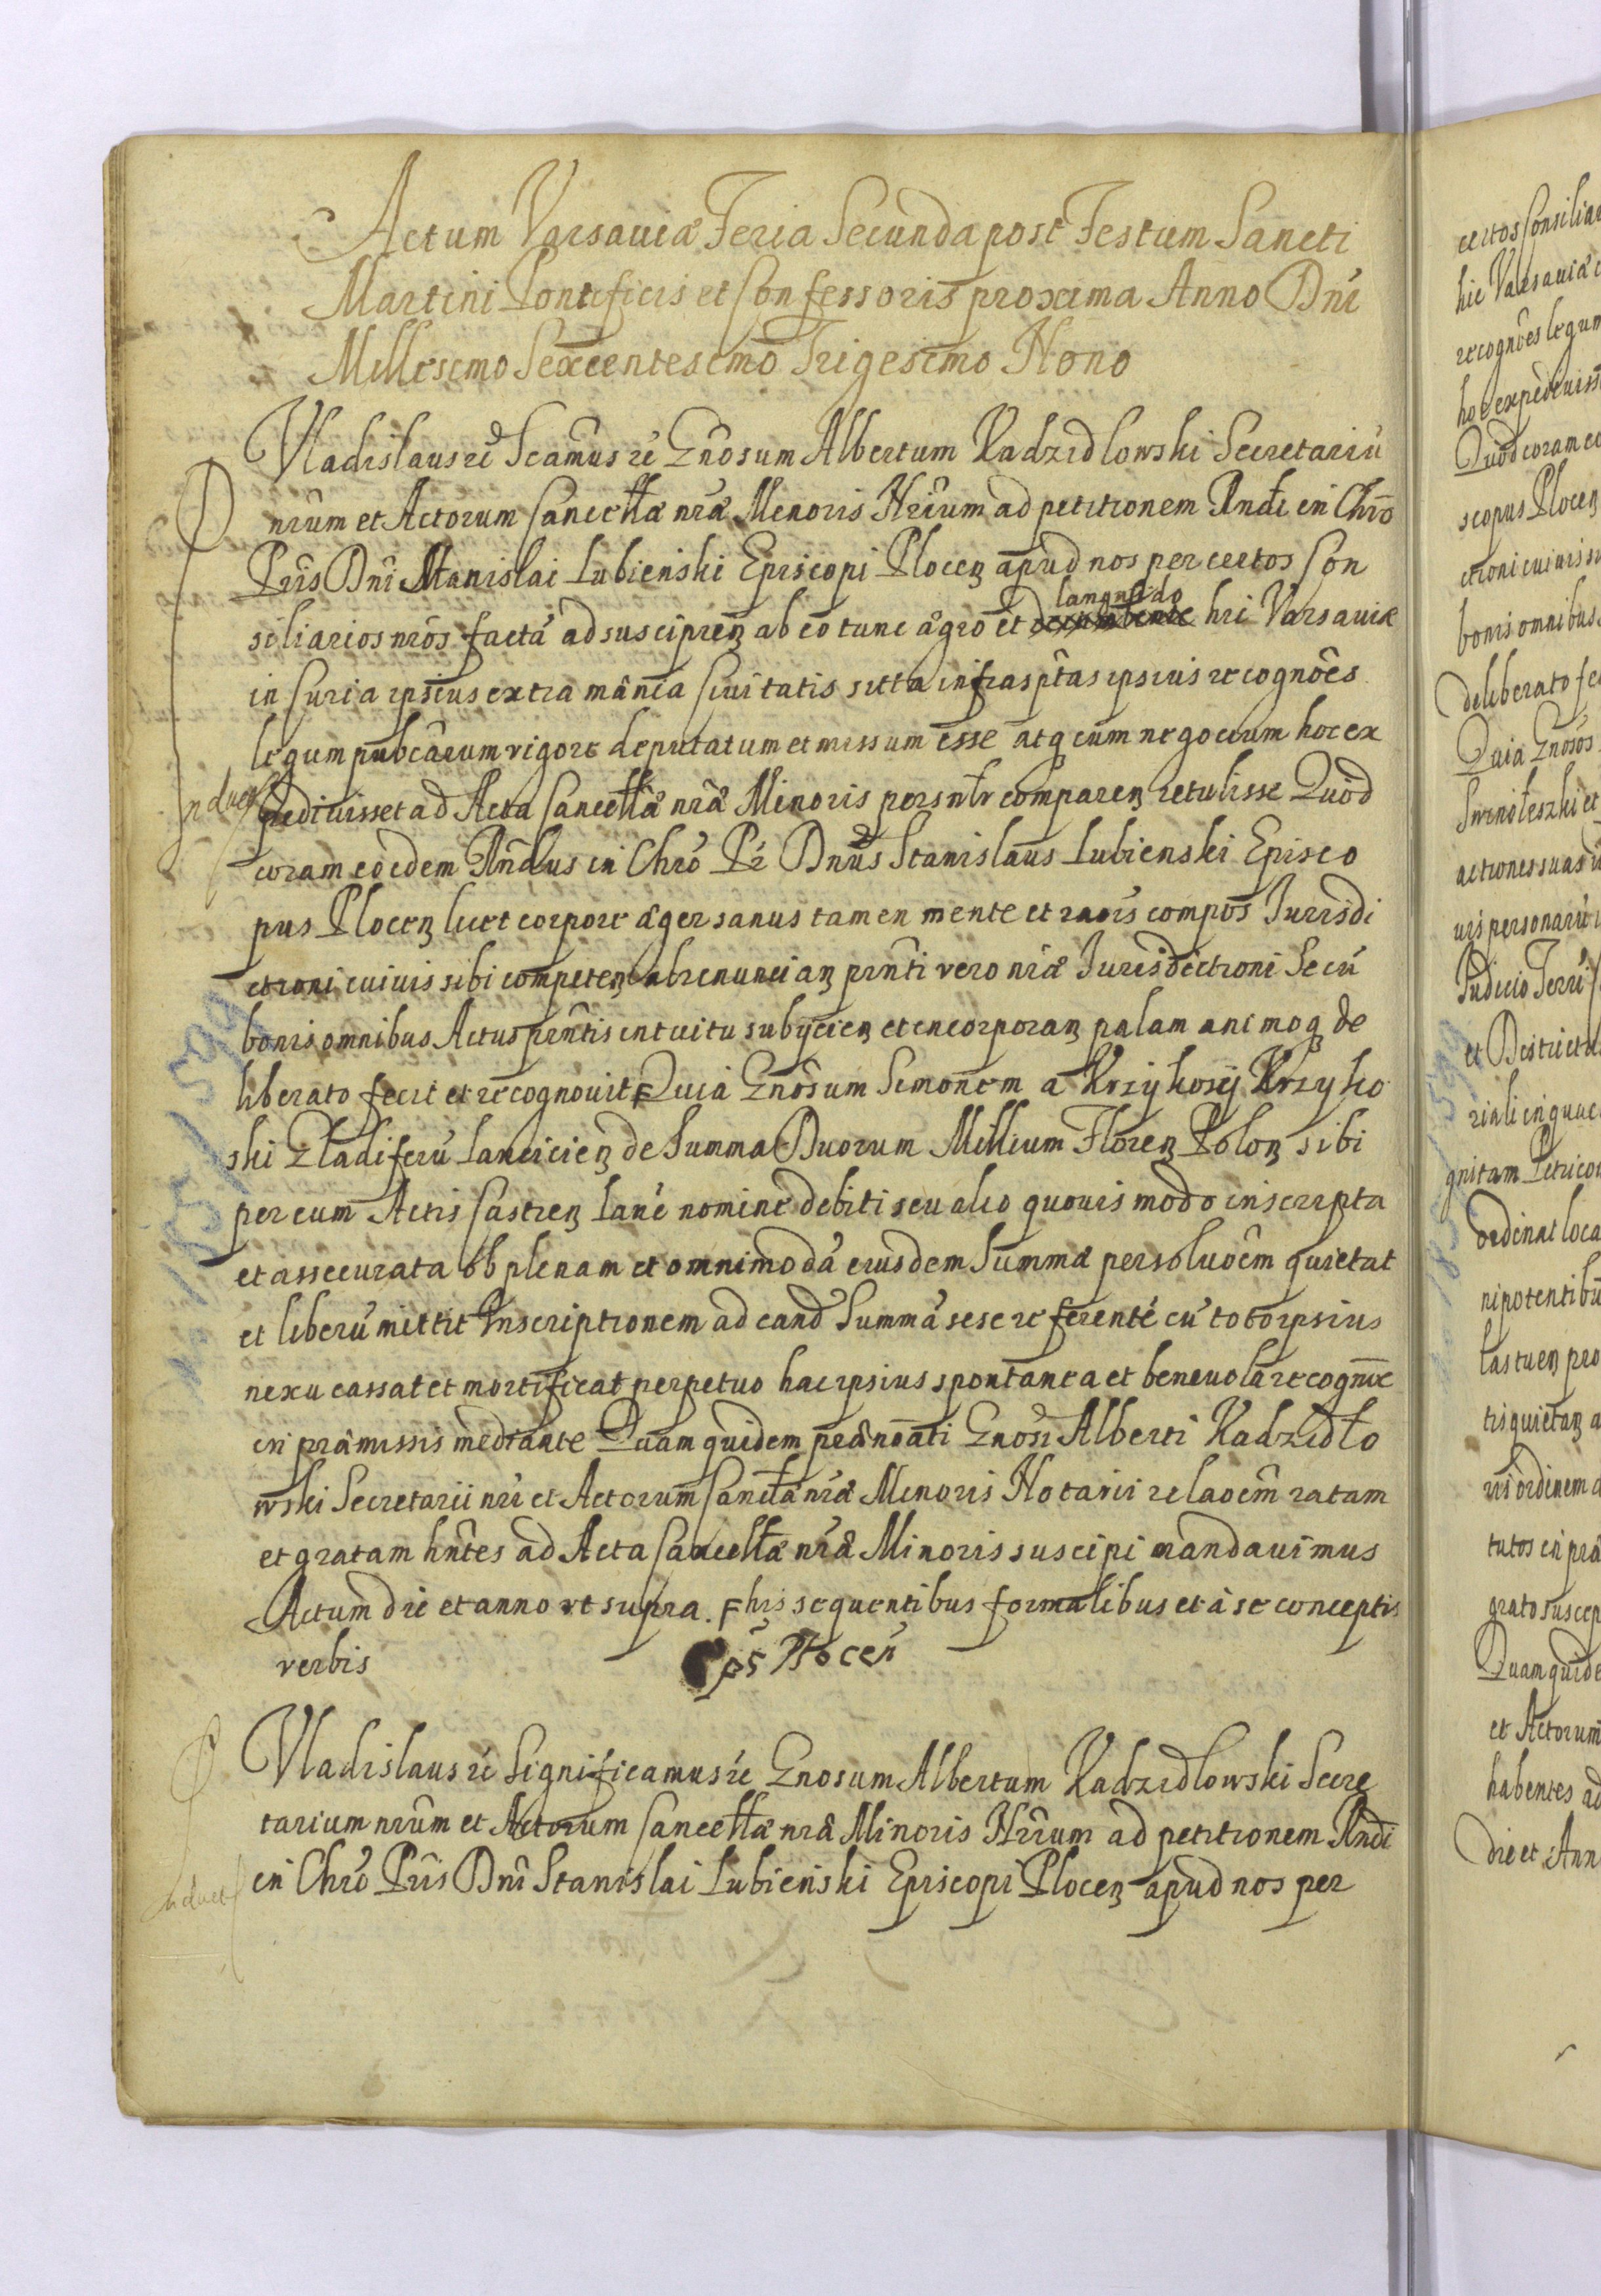 Actum Varsaviæ Feria Secunda post Festum Sancti
Martini Pontificis et Confessoris proxima Anno Dni
Millesimo Sexcentesimo Trigesimo Nono
Vladislaus rc Scamus rc Gnosum Albertum Kadzidlowski Secretariu
nrum et Actorum Cancellæ nræ Minoris Nrium ad petitionem Rndi in Chro
Pris Dni Stanislai Lubienski Episcopi Plocen apud nos per certos Con
siliarios nros factā ad suscipien ab eo tunc ægro et decumbente languido hri Varsaviæ
in Curia ipsius extra mænia Civitatis sitta infrasptas ipsius recognoes
legum publicarum rigore deputatum et missum esse atq cum negocium hoc ex
pedivisset ad Acta Cancellæ nræ Minoris personltr comparen retulisse Quod
coram eo idem Rndus in Chro Pr Dnus Stanislaus Lubienski Episco
pus Plocen licet corpore æger sanus tamen mente et raois compos Jurisdi
ctioni cuivis sibi competen abrenuncian prnti vero nræ Jurisdictioni Se cū
bonis omnibus Actus prntis intuitu subijcien et incorporan palam animoq de
liberato fecit et recognovit Ϝ Quia Gnosum Simonem a Krzykosy Krzyko
ski Gladiferū Lancicien de Summa Duorum Millium Floren Polon sibi
per eum Actis Castren Lanc nomine debiti seu alio quovis modo inscripta
et assecurata ob plenam et omnimodā eiusdem Summæ persolvoem quietat
et liberū mittit Inscriptionem ad eand Summā sese referentē cū toto ipsius
nexu cassat et mortificat perpetuo hac ipsius spontanea et benevola recogne
in præmissis mediante Quam quidem prænoati Gnosi Alberti Kadzidlo
wski Secretarii nri et Actorum Cancllæ nræ Minoris Notarii relaoem ratam
et gratam hntes ad Acta Cancellæ nræ Minoris suscipi mandavimus
Actum die et anno ut supra. Ϝ his sequentibus formalibus et à se conceptis
verbis
Eps Plocen
Vladislaus rc Significamus rc Gnosum Albertum Kadzidlowski Secre
tarium nrum et Actorum Cancellæ nræ Minoris Nrium ad petitionem Rndi
in Chro Pris Dni Stanislai Lubienski Episcopi Plocen apud nos per
Induct
Induct
certos Consiliar
hic Varsaviæ
recognoes legum
hoc expedivisse
Quod coram eo
scopus Plocen
ctioni cuivis si
bonis omnibus
deliberato fe
Quia Gnosos
actiones suas
vis personarū
Judicio Terri
et Districtu
gnitam Petrico
ordinat loca
nipotentibū
tis quietan a
vis ordinem a
tutos in præ
grato suscep
Quam quide
et Actorum
habentes ad
die et Ann